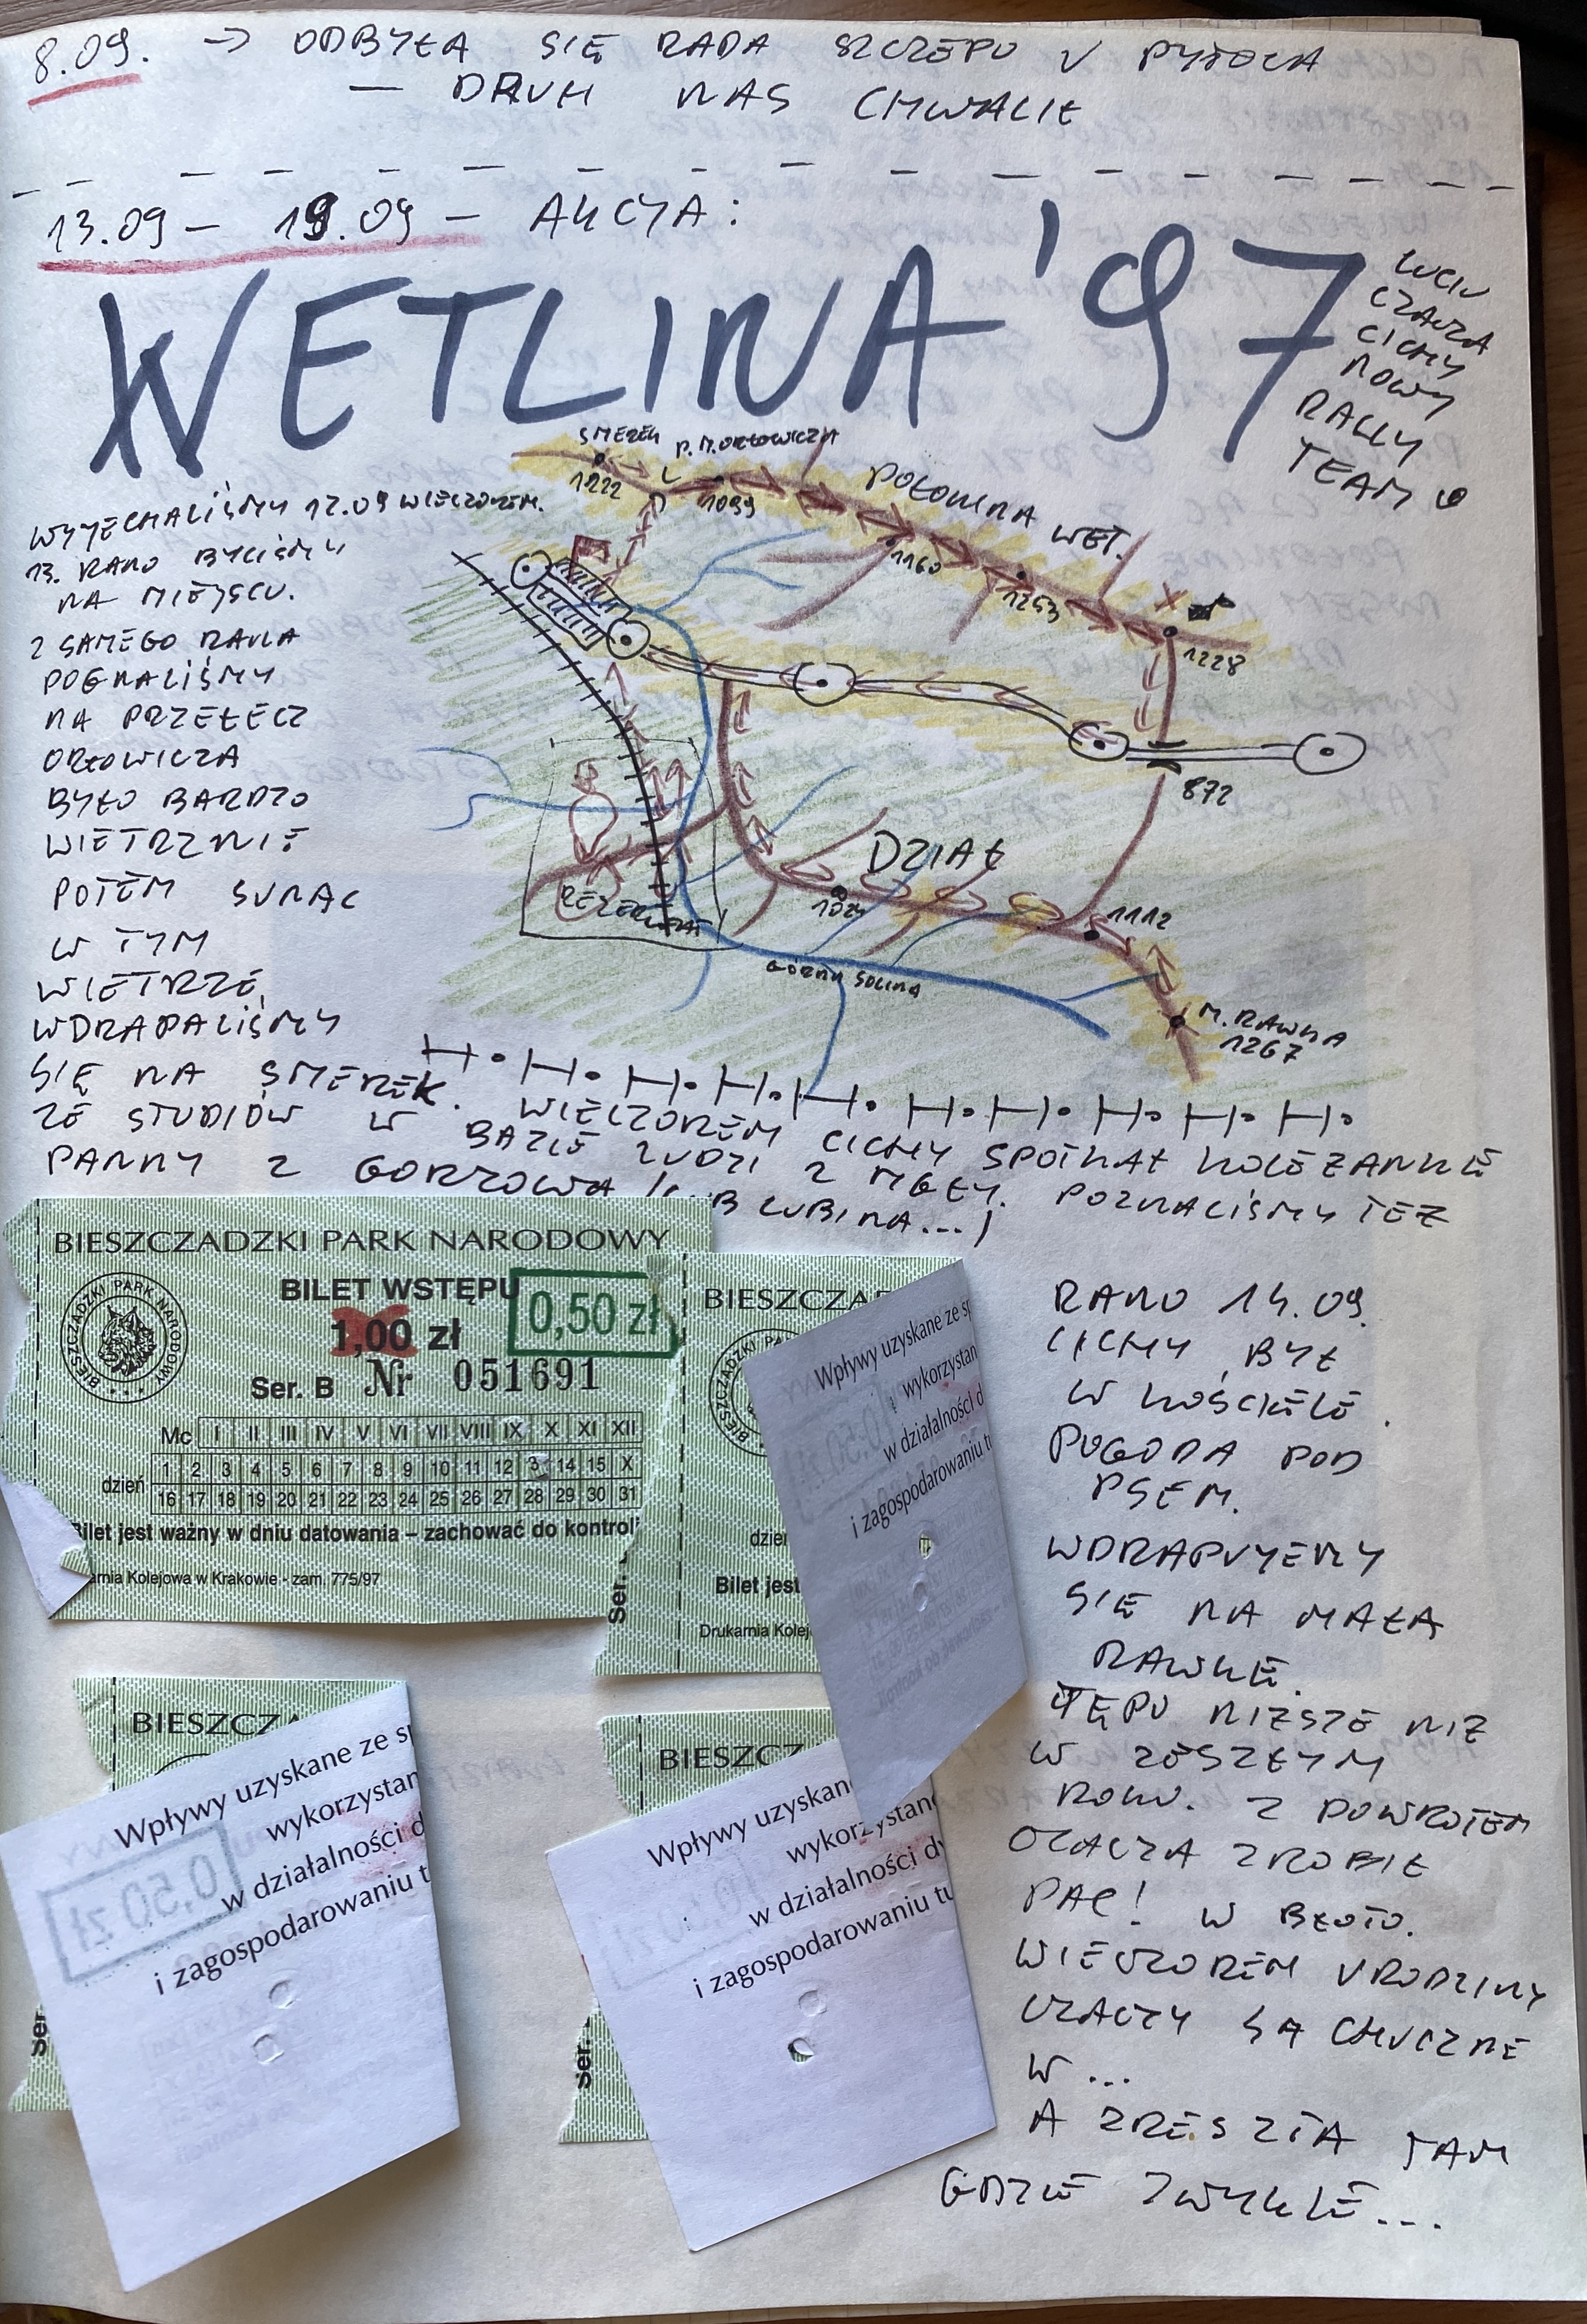 8.09. → ODBYŁA SIĘ RADA SZCZEPU U PYTOLA
— DRUH NAS CHWALIŁ
13.09 — 19.09 — AKCJA:
WETLINA '97
LUCIU
CZACZA
CICHY
NOWY
RALLY
TEAM
SMEREK
1222
P. M. ORŁOWICZA
1099
POŁONINA WET.
1160
1253
1228
872
DZIAŁ
1024
1112
REZERWAT
GÓRNA SOLINA
M. RAWKA
1267
WYJECHALIŚMY 12.09 WIECZOREM.
13. RANO BYLIŚMY
NA MIEJSCU.
Z SAMEGO RANA
POGNALIŚMY
NA PRZEŁĘCZ
ORŁOWICZA
BYŁO BARDZO
WIETRZNIE
POTEM SUNĄC
W TYM
WIETRZE,
WDRAPALIŚMY
SIĘ NA SMEREK. WIECZOREM CICHY SPOTKAŁ KOLEŻANKĘ
ZE STUDIÓW W BAZIE LUDZI Z MGŁY. POZNALIŚMY TEŻ
PANNY Z GORZOWA (LUB LUBINA...)
BIESZCZADZKI PARK NARODOWY
BILET WSTĘPU
1,00 zł
0,50 zł
BIESZCZADZKI PARK NARODOWY
Ser. B Nr 051691
Mc I II III IV V VI VII VIII IX X XI XII
dzień
1 2 3 4 5 6 7 8 9 10 11 12 3 14 15 X
16 17 18 19 20 21 22 23 24 25 26 27 28 29 30 31
Bilet jest ważny w dniu datowania – zachować do kontroli
arnia Kolejowa w Krakowie - zam. 775/97
Ser.
BIESZCZA
dzień
Bilet jest
Drukarnia Kolej
Wpływy uzyskane ze sp
wykorzystan
w działalności d
i zagospodarowaniu t
BIESZCZA
Wpływy uzyskane ze sp
wykorzystan
w działalności d
i zagospodarowaniu t
0,50 zł
Ser.
BIESZCZ
Wpływy uzyskan
wykorzystane
w działalności dy
i zagospodarowaniu tu
Ser.
RANO 14.09.
CICHY BYŁ
W KOŚCIELE.
POGODA POD
PSEM.
WDRAPUJEMY
SIĘ NA MAŁĄ
RAWKĘ.
TĘPO NIŻSZE NIŻ
W ZESZŁYM
ROKU. Z POWROTEM
CZACZA ZROBIŁ
PAC! W BŁOTO.
WIECZOREM URODZINY
CZACZY SĄ HUCZNE
W ...
A ZRESZTĄ TAM
GDZIE ZWYKLE...